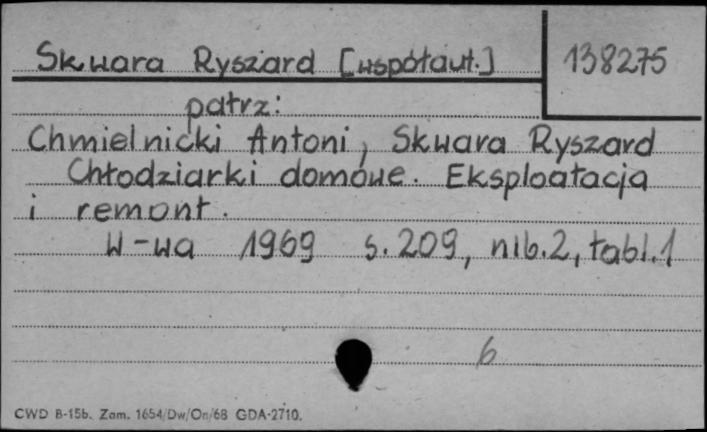 Skwara Ryszard [współaut.] 138275
patrz:
Chmielnicki Antoni, Skwara Ryszard
Chłodziarki domowe. Eksploatacja
i remont.
W-wa 1969 s. 209, nlb. 2, tabl. 1
6
CWD B-15b. Zam. 1654/Dw/On/68 GDA-2710.